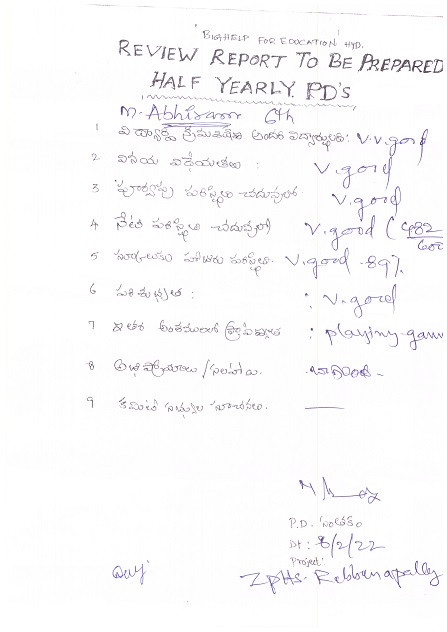 'BIGHELP FOR EDUCATION' HYD.
REVIEW REPORT TO BE PREPARED
HALF YEARLY. PD's
M. Abhiram 6th
1 విద్యార్థి క్రమశిక్షణ : v.v.good
2 వినయ విధేయతలు : v.good
3 పూర్వపు పరిస్థితి చదువులో v.good
4 నేటి పరిస్థితి చదువులో v.good ( 482/600
5 హాజరు పరిస్థితి. v.good - 89%
6 పరిశుభ్రత : : v.good
7 ఇతర అంశములలో ప్రావీణ్యత : playing gam
8 అభిప్రాయాలు / సలహాలు. బాగుంది -
9 కమిటీ సభ్యుల సూచనలు. —
P.D. సంతకం
Dt : 8/2/22
Project:
ZPHS. Rebbanapally